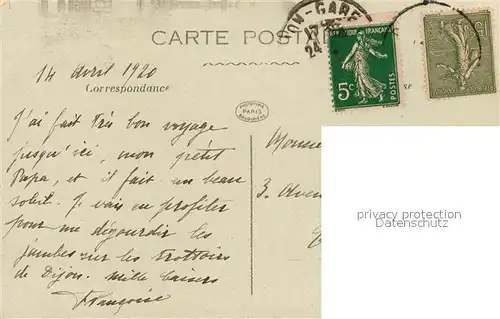 CARTE POST
14 Avril 1920
Correspondance
PHOTOTYPIE
PARIS
BAUDINIERE
J'ai fait très bon voyage
jusqu'ici, mon petit
Papa, et il fait un beau
soleil. Je vais en profiter
pour me dégourdir les
jambes sur les trottoirs
de Dijon. Mille baisers
Françoise
ON-GARE
5c
POSTES
Monsie
3. Aven
privacy protection
Datenschutz